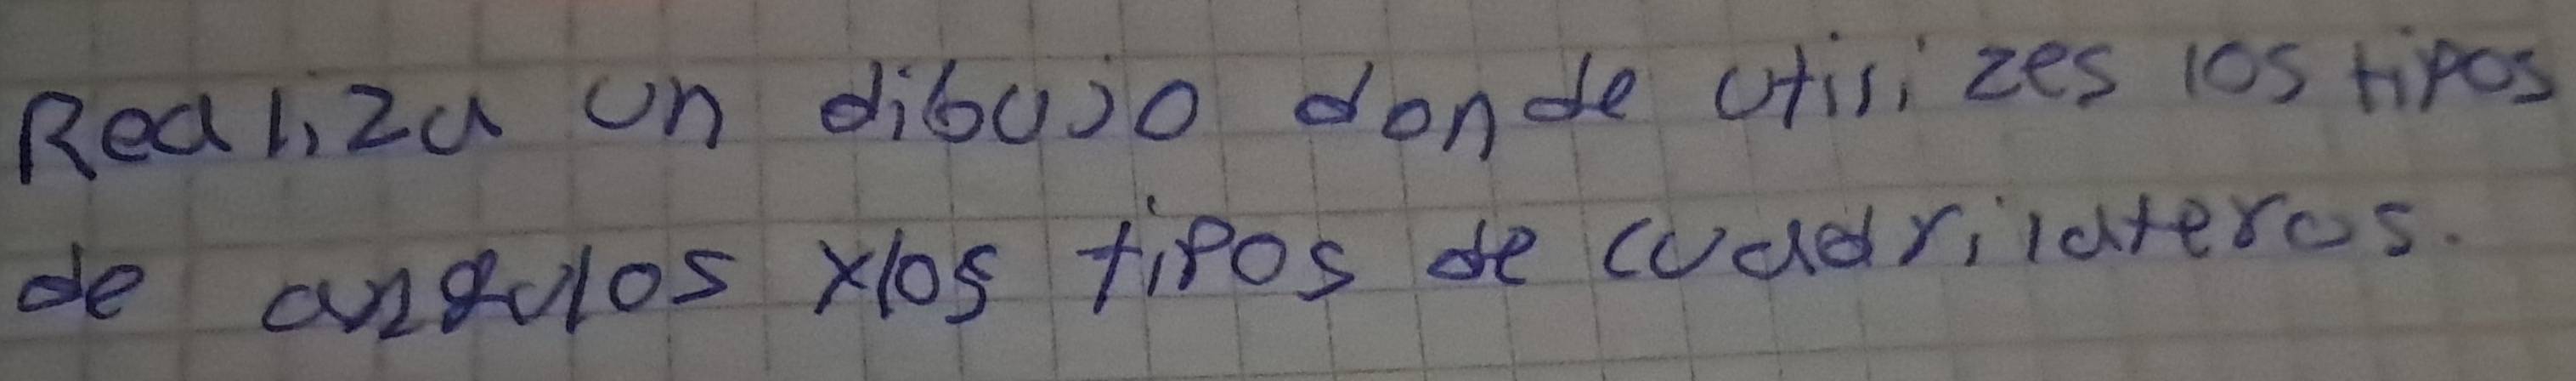 Realiza un dibujo donde utilizes los tipos
de angulos y los tipos de cuadrilateros.